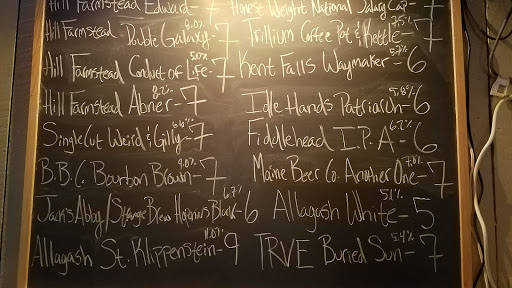 Hill Farmstead Edward - 7
Hill Farmstead Double Galaxy - 8.0% 7
Hill Farmstead Conduct of Life - 5.0% 7
Hill Farmstead Abner - 8.2% 7
SingleCut Weird & Gilly - 6.6% 7
B.B.C. Bourbon Brown - 9.0% 7
Jack's Abby / Strange Brew Hoponius 6.7% 6
Allagash St. Klippenstein - 11.0% 9
Honest Weight National Salary Cap - 7
Trillium Coffee Pot & Kettle - 7.5% 7
Kent Falls Waymaker - 6
Idle Hands Patriarch - 5.8% 6
Fiddlehead I.P.A - 6.2% 6
Maine Beer Co. Another One - 7.0% 7
Allagash White - 5.1% 5
TRVE Buried Sun - 5.4% 7